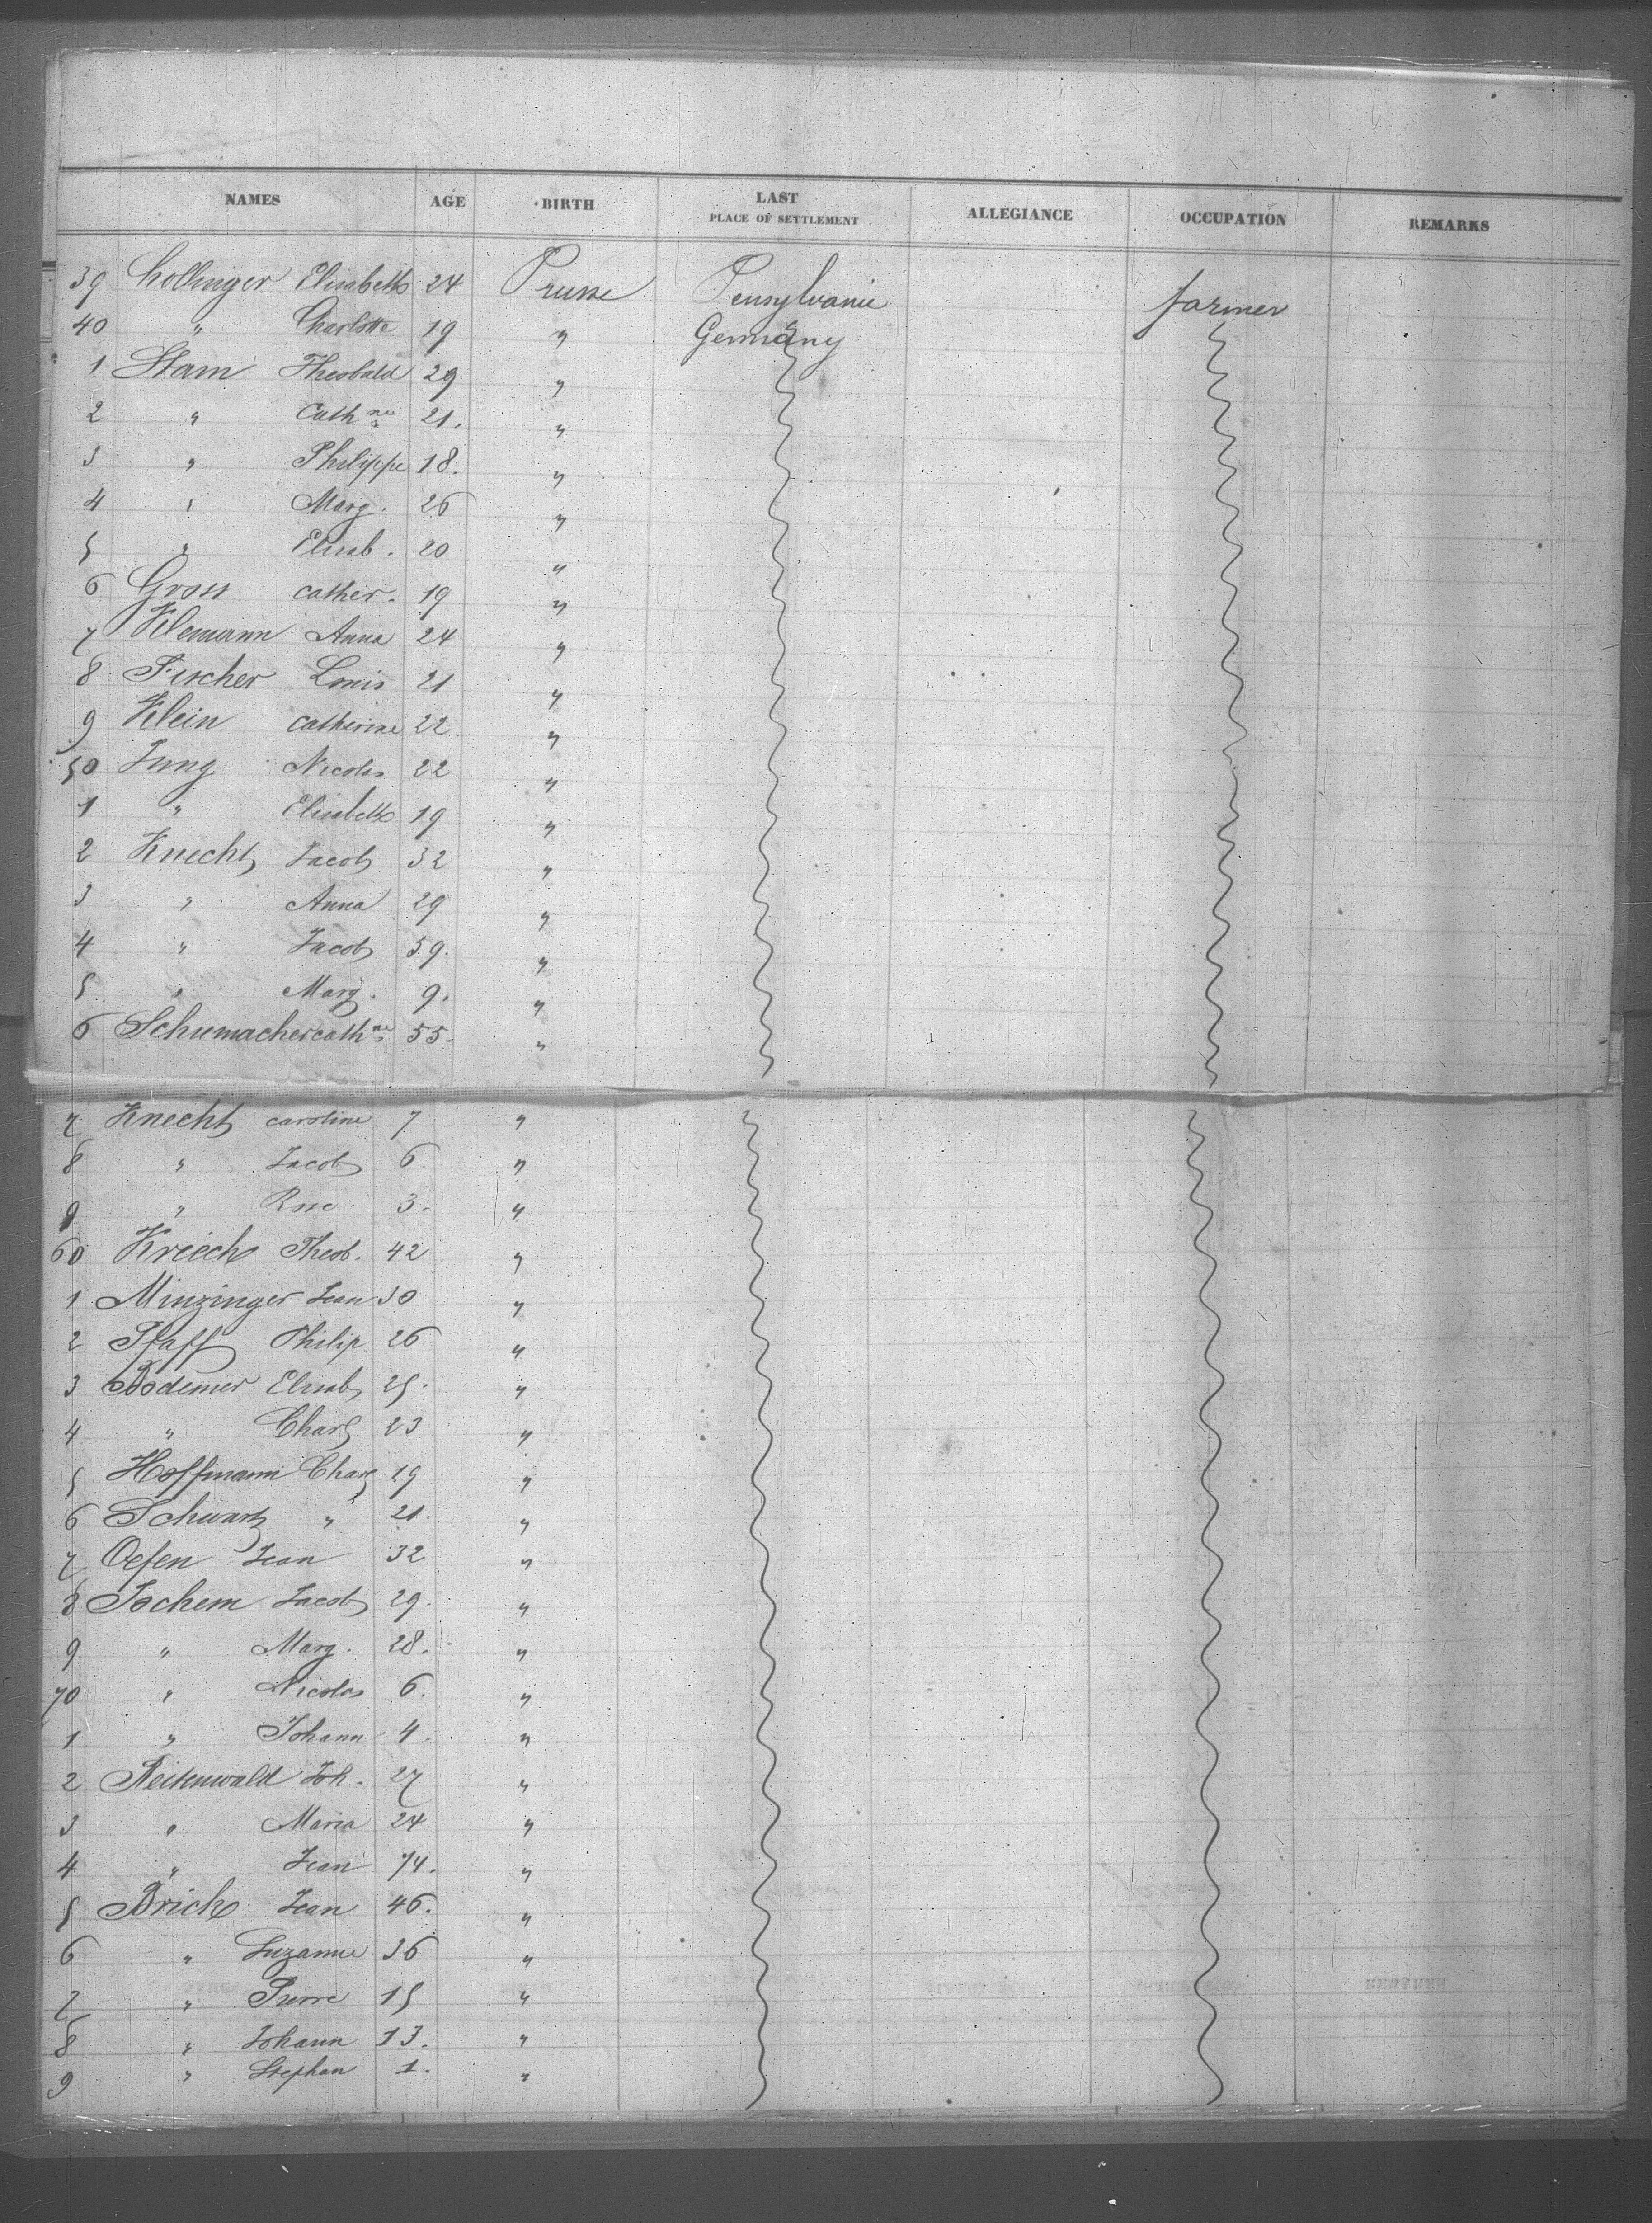 NAMES AGE BIRTH LAST PLACE OF SETTLEMENT ALLEGIANCE OCCUPATION REMARKS
39 Collinger Elisabeth 24 Prusse Pensylvanie farmer
40 " Charlotte 19 " Germany
1 Stam Theobald 29 "
2 " Cathne 21. "
3 " Philippe 18. "
4 " Marg. 26 "
5 " Elisab. 20 "
6 Gross cather. 19 "
7 Klemann Anna 24 "
8 Fischer Louis 21 "
9 Klein catherine 22 "
50 Jung Nicolas 22 "
1 " Elisabeth 19 "
2 Knecht Jacob 32 "
3 " Anna 29 "
4 " Jacob 59. "
5 " Marg. 9. "
6 Schumacher cathne 55. "
7 Knecht caroline 7 "
8 " Jacob 6 "
9 " Rose 3. "
60 Kriech Theob. 42 "
1 Minzinger Jean 30 "
2 Pfaff Philip 26 "
3 Bodemer Elisab 25. "
4 " Charl 23 "
5 Hoffmann Charl 19 "
6 Schwartz " 21. "
7 Oefen Jean 32 "
8 Jochem Jacob 29. "
9 " Marg. 28. "
70 " Nicolas 6. "
1 " Johann 4. "
2 Reitenwald Joh. 27 "
3 " Maria 24 "
4 " Jean 74. "
5 Brich Jean 46. "
6 " Suzanne 36 "
7 " Pierre 15 "
8 " Johann 13. "
9 " Stephan 1. "